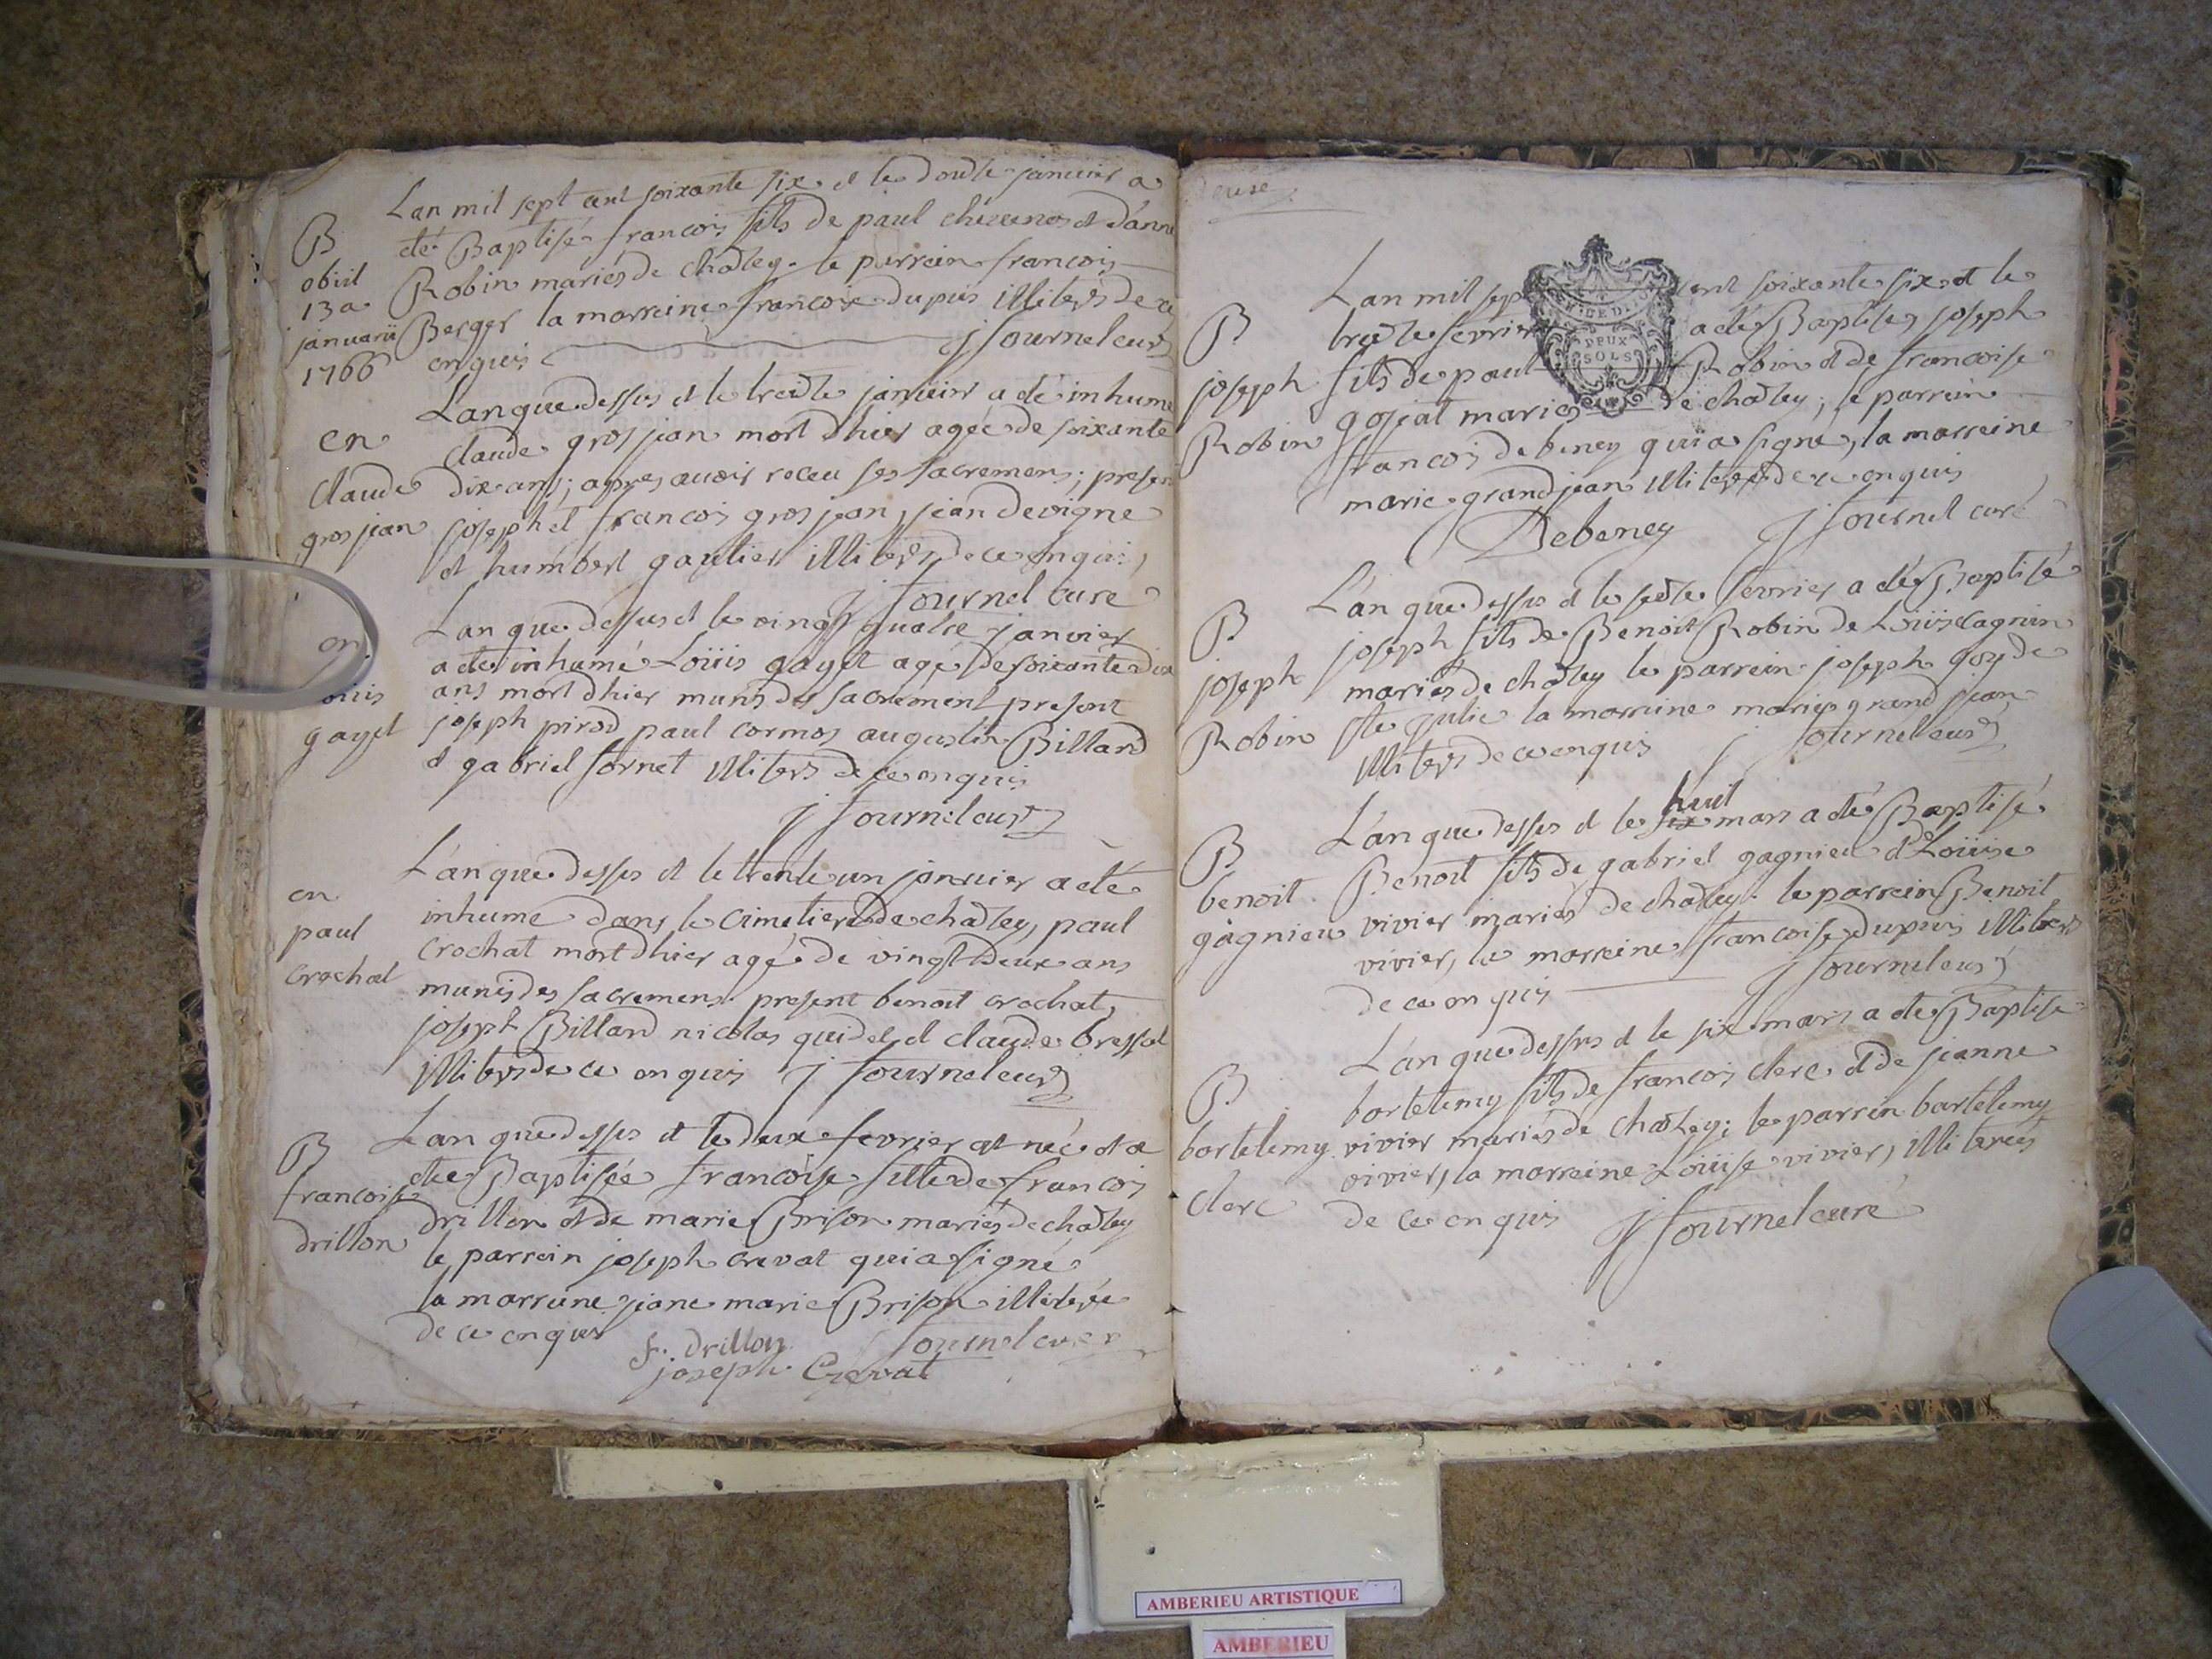 Lan mil sept cent soixante six et le douze janvier a
B
été Baptisé francois fils de paul chevenos et d'anne
obiit
Robin mariés de chazey. le parrein francois
13a
Berger la marreine francoise dupuis illiterés de ce
januarii
enquis j fournel curé
1766
Lan que dessus et le treize janvier a été inhumé
en
claude grosjean mort dhier agée de soixante
claude
dix ans; apres avoir receu ses sacremens; present
grosjean
joseph et francois grosjean, jean devigne
et humbert gaulier illiterés de ce enquis,
j fournel curé
Lan que dessus et le vingt quatre janvier
en
a été inhumé Loüis gayet agé de soixante dix
ouis
ans mort dhier munis des sacrement present
gayet
joseph pirod paul cormos augustin Billard
et gabriel fornet illiterés de ce enquis
j fournel curé
L'an que dessus et le trente un janvier a été
en
inhumé dans le cimetiere de chazey, paul
paul
crochat mort dhier agé de vingt deux ans
crochat
munis des sacremens. present benoit crochat,
joseph Billard nicolas quidel et claude bressat
illiterés de ce enquis j fournel curé
Lan que dessus et le deux fevrier est née et a
B
été Baptisée francoise fille de francois
francoise
drillon et de marie Brison mariés de chazey
drillon
le parrein joseph crevat qui a signé
la marreine jeane marie Brison illiterée
de ce enquis
f. drillon fournel curé
joseph Crevat
deuxe
DEUX
SOLS
Lan mil sept cent soixante six et le
B
treize fevrier a été Baptisé joseph
joseph
fils de paul Robin et de francoise
Robin
gojat mariés de chazey; le parrein
francois debeney qui a signé, la marreine
marie grandjean illiterée de ce enquis
Debeney j fournel curé
L'an que dessus et le seize fevrier a été Baptisé
B
joseph fils de Benoit Robin de Loüise cagnin
joseph
mariés de chazey le parrein joseph goy de
Robin
ste julie la marreine marie grand jean
illiterés de ce enquis j fournel curé
huit
L'an que dessus et le six mars a été Baptisé
B
Benoit fils de gabriel gagnieu et Loüise
benoit
vivier mariés de chazey. le parrein Benoit
gagnieu
vivier, la marreine francoise dupuis illiterés
de ce enquis j fournel curé
L'an que dessus et le six mars a été Baptisé
B
bartelemy fils de francois clerc et de jeanne
bartelemy
vivier mariés de chazey; le parrein bartelemy
clerc
vivier, la marreine Loüise vivier, illiterés
de ce enquis j fournel curé
AMBERIEU ARTISTIQUE
AMBERIEU